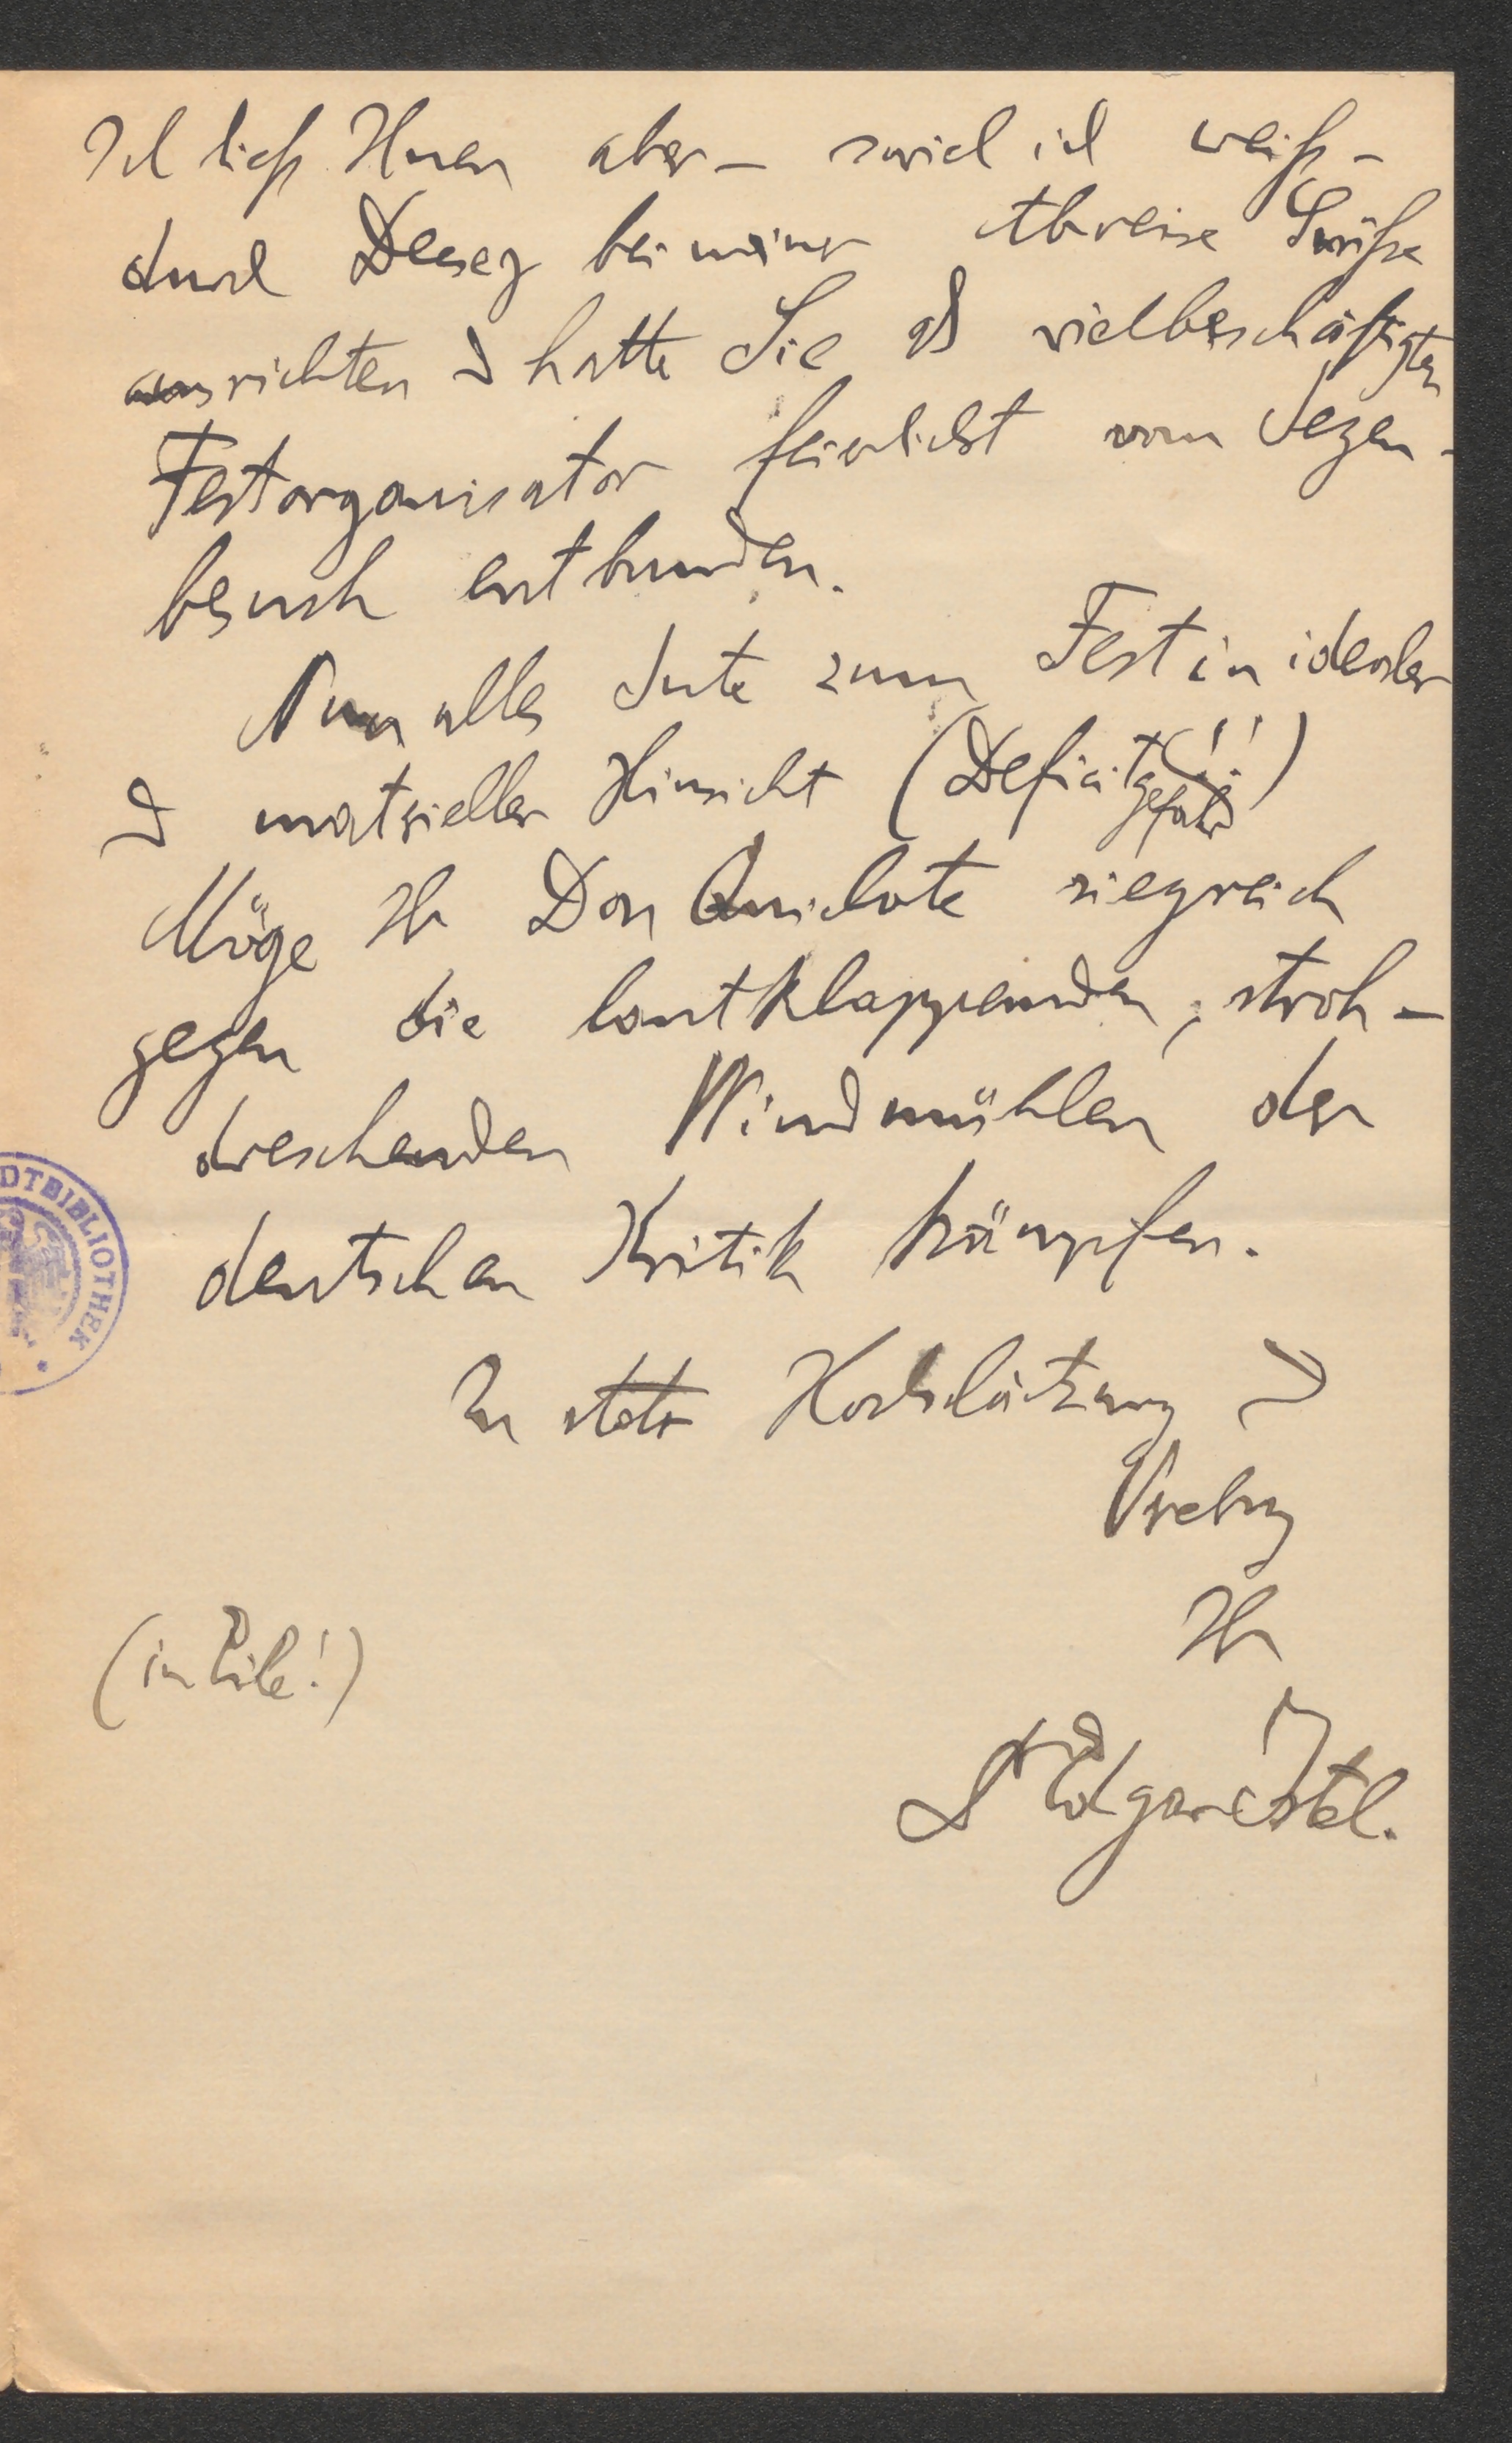 Ich ließ Ihnen aber – soviel ich weiß –
durch Decsey bei meiner Abreise Grüße
ausrichten & hatte Sie als vielbeschäftigten
Festorganisator feierlichst vom Gegen-
besuch entbunden.
Nun alles Gute zum Fest in idealer
& materieller Hinsicht (Deficitgefahr(!!)
Möge Ihr Don Quichote siegreich
gegen die lautklappernden, stroh-
dreschenden Windmühlen der
deutschen Kritik kämpfen.
In steter Hochschätzung &
Verehrg
Ihr
(in Eile!)
Dr Edgar Istel.
DTBIBLIOTHEK